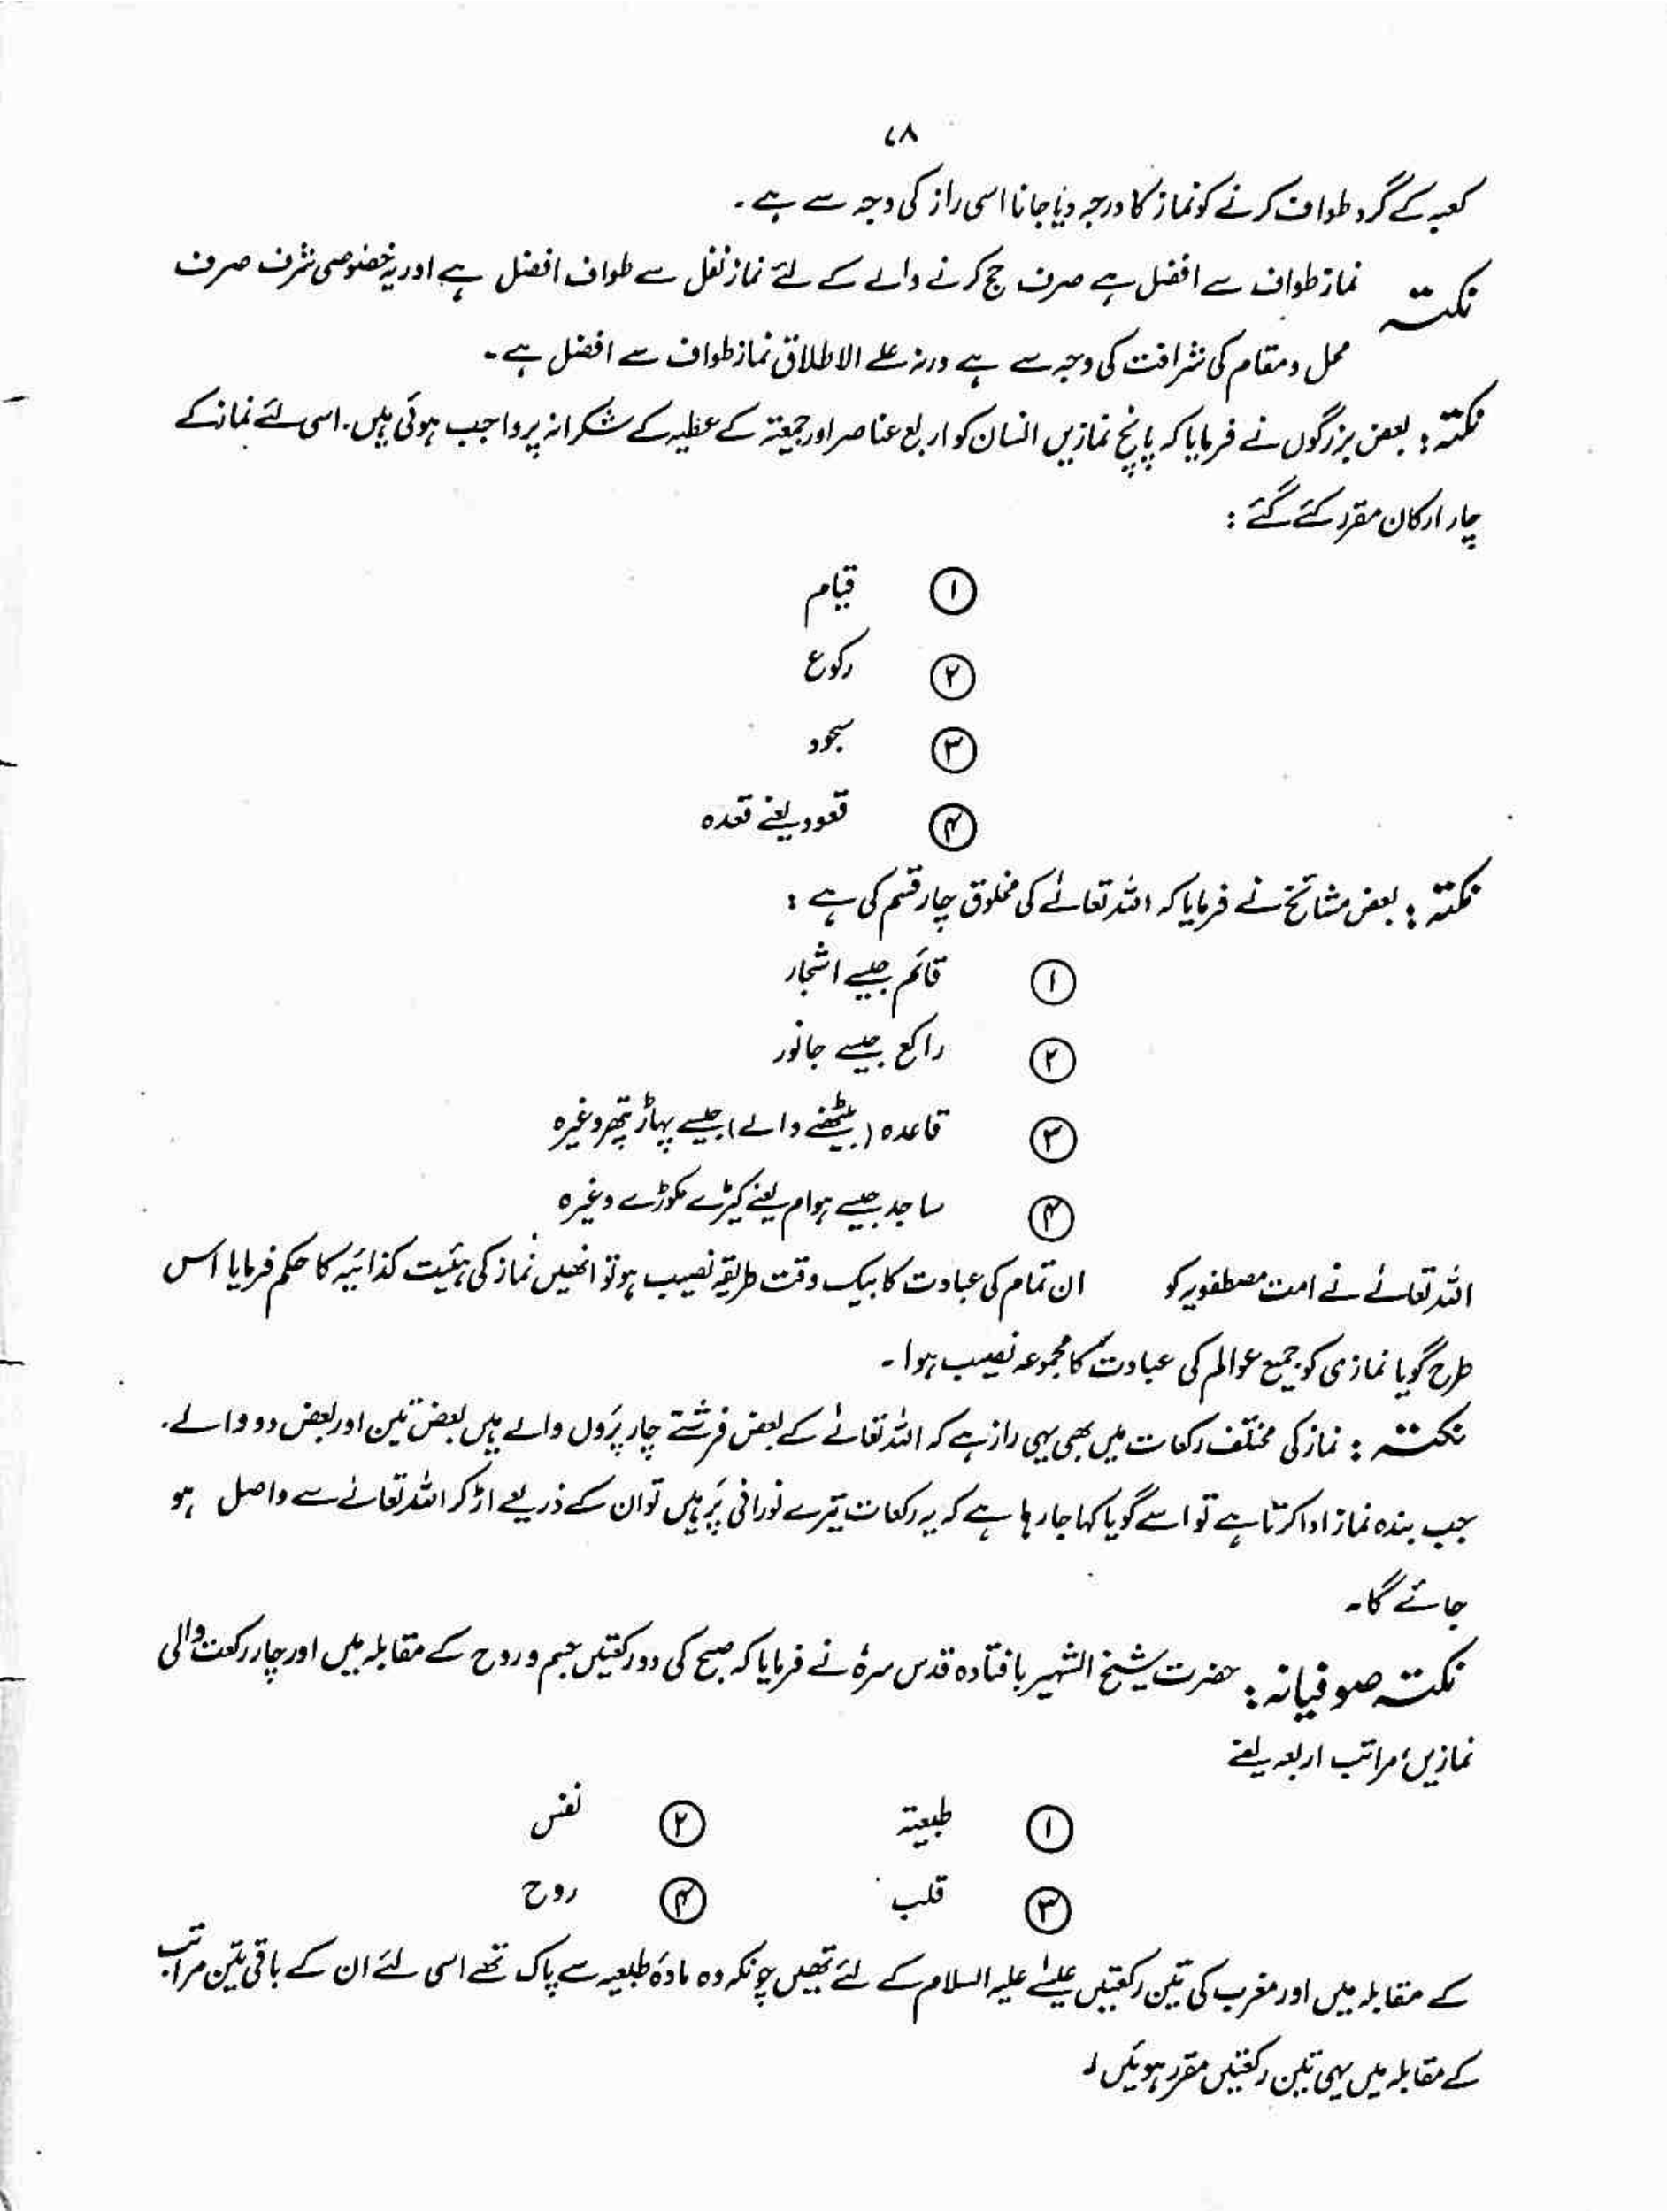 ۷۸
کعبہ کے گرد طواف کرنے کو نماز کا درجہ دیا جانا اسی راز کی وجہ سے ہے ۔
نکتہ نماز طواف سے افضل ہے صرف حج کرنے والے کے لئے نماز نفل سے طواف افضل ہے اور یہ خصوصی شرف صرف
محل و مقام کی شرافت کی وجہ سے ہے ورنہ علے الاطلاق نماز طواف سے افضل ہے ۔
نکتہ : بعض بزرگوں نے فرمایا کہ پانچ نمازیں انسان کو اربع عناصر اور جمعیتہ کے عطیہ کے شکرانہ پر واجب ہوئی ہیں . اسی لئے نماز کے
چار ارکان مقرر کئے گئے :
① قیام
② رکوع
③ سجود
④ قعود یعنے قعدہ
نکتہ : بعض مشائخ نے فرمایا کہ اللہ تعالےٰ کی مخلوق چار قسم کی ہے :
① قائم جیسے اشجار
② راکع جیسے جانور
③ قاعدہ ( بیٹھنے والے ) جیسے پہاڑ پتھر وغیرہ
④ ساجد جیسے ہوام یعنے کیڑے مکوڑے وغیرہ
اللہ تعالےٰ نے امت مصطفویہ کو ان تمام کی عبادت کا بیک وقت طریقہ نصیب ہو تو انھیں نماز کی ہئیت کذائیہ کا حکم فرمایا اس
طرح گویا نمازی کو جمیع عوالم کی عبادت کا مجموعہ نصیب ہوا ۔
نکتہ : نماز کی مختلف رکعات میں بھی یہی راز ہے کہ اللہ تعالےٰ کے بعض فرشتے چار پَروں والے ہیں بعض تین اور بعض دو والے .
جب بندہ نماز ادا کرتا ہے تو اسے گویا کہا جا رہا ہے کہ یہ رکعات تیرے نورانی پَر ہیں تو ان کے ذریعے اڑ کر اللہ تعالےٰ سے واصل ہو
جائے گا ۔
نکتہ صوفیانہ : حضرت شیخ الشہیر بافتادہ قدس سرہٗ نے فرمایا کہ صبح کی دو رکعتیں جسم و روح کے مقابلہ میں اور چار رکعت والی
نمازیں مراتب اربعہ یعنے
① طبیعتہ ② نفس
③ قلب ④ روح
کے مقابلہ میں اور مغرب کی تین رکعتیں عیسےٰ علیہ السلام کے لئے تھیں چونکہ وہ مادۂ طبیعہ سے پاک تھے اسی لئے ان کے باقی تین مراتب
کے مقابلہ میں یہی تین رکعتیں مقرر ہوئیں ۔